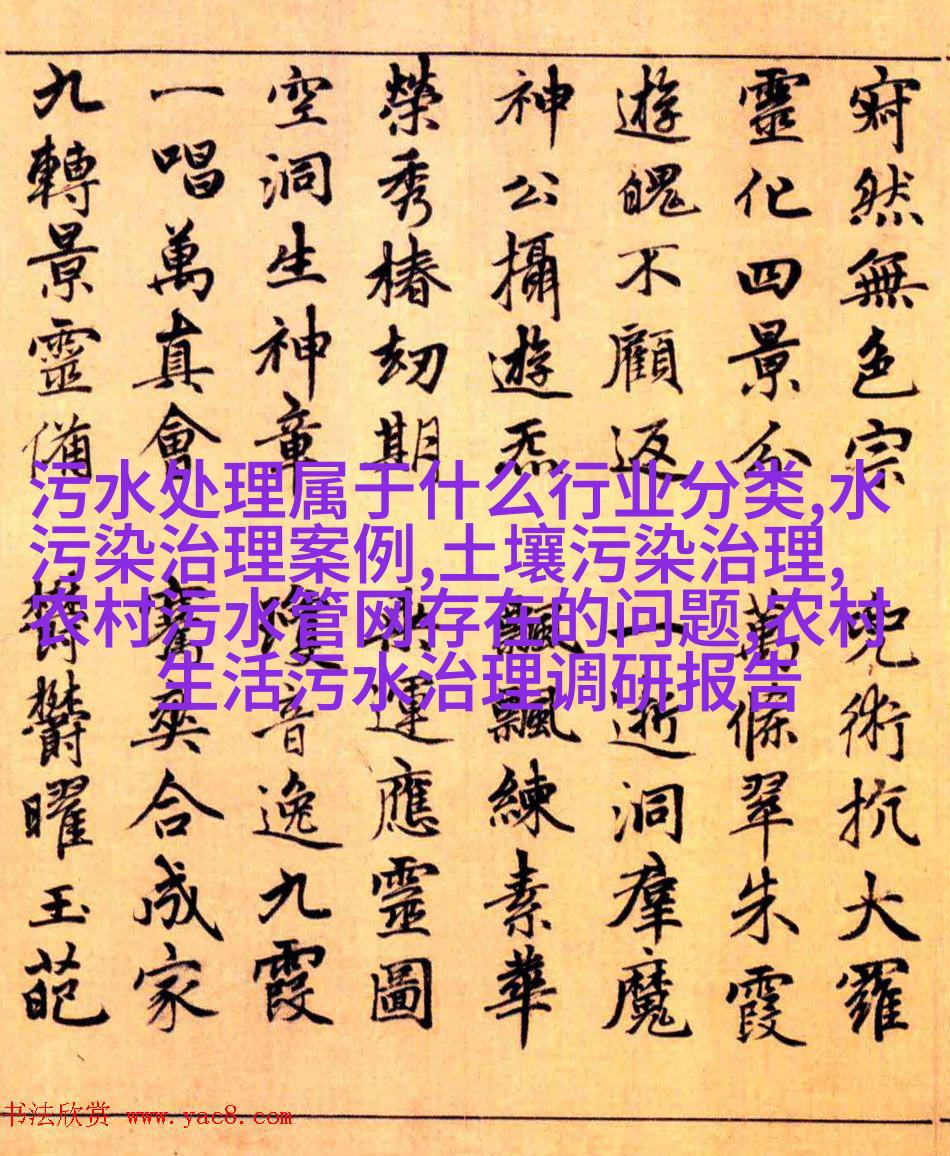 寂然無色宗兜術抗大羅
靈化四景分萬條翠朱霞
遊魄不顧返一逝洞羣魔
神公攝遊炁飄飄練素華
榮秀椿劫期運應靈圖
空洞生神章瓊音逸九霞
一唱萬真會騫爽合成家
九轉景靈備欝欝曜玉葩
污水处理属于什么行业分类,水
污染治理案例,土壤污染治理,
农村污水管网存在的问题,农村
生活污水治理调研报告
书法欣赏 www.yac8.com